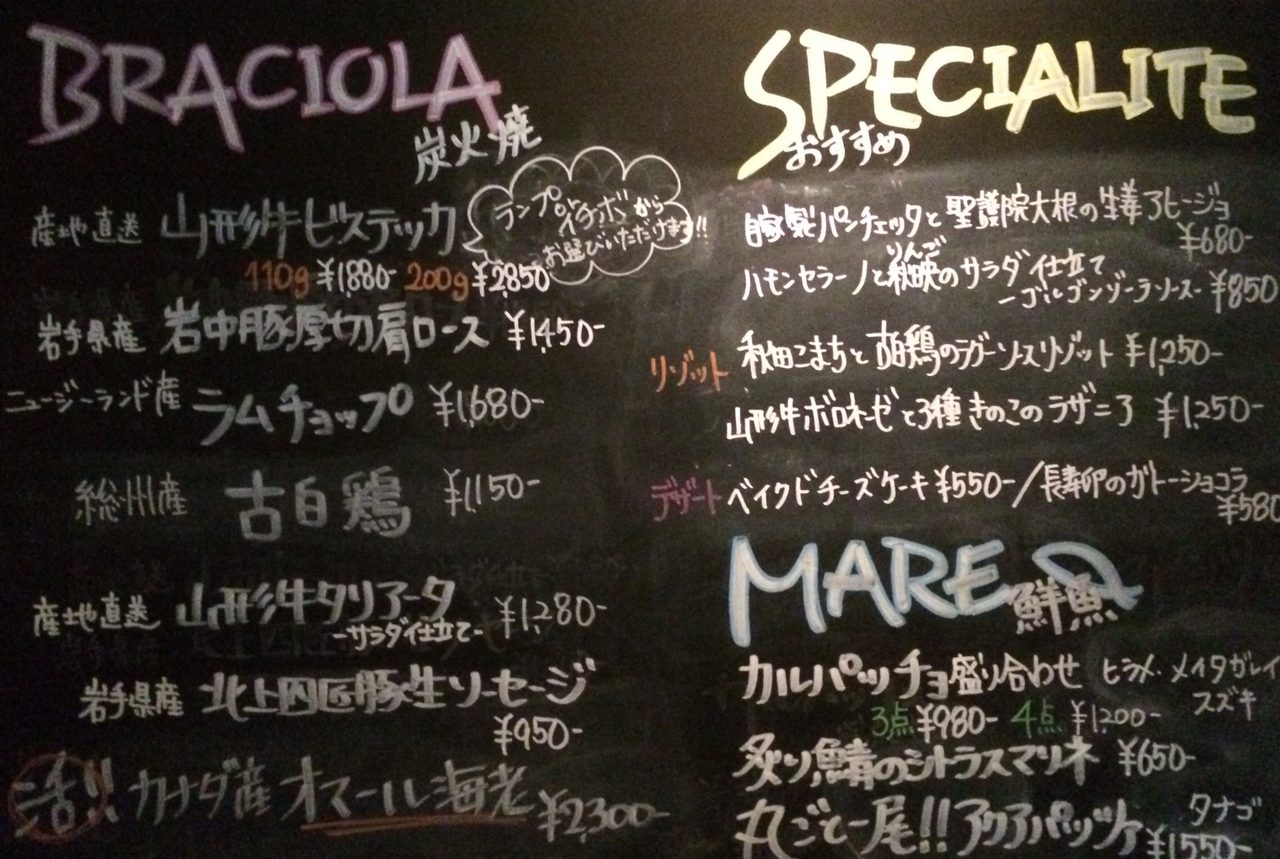 BRACIOLA
炭火焼
産地直送 山形牛ビステッカ
ランプorイチボから
お選びいただけます!!
110g ¥1,880- 200g ¥2,850
岩手県産 岩中豚厚切肩ロース ¥1,450-
ニュージーランド産 ラムチョップ ¥1,680-
総州産 古白鶏 ¥1,150-
産地直送 山形牛タリアータ ¥1,280-
-サラダ仕立て-
岩手県産 北上四匹豚生ソーセージ
¥950-
活!! カナダ産 オマール海老 ¥2,300-
SPECIALITE
おすすめ
自家製パンチェッタと聖護院大根の生姜アヒージョ
¥680-
りんご
ハモンセラーノと秋映のサラダ仕立て
-ゴルゴンゾーラソース- ¥850
リゾット 秋田こまちと古白鶏のラグーソースリゾット ¥1,250-
山形牛ボロネーゼと3種きのこのラザニア ¥1,250-
デザート ベイクドチーズケーキ ¥550-/長寿卵のガトーショコラ
¥580
MARE
鮮魚
カルパッチョ盛り合わせ ヒラメ・メイタガレイ
スズキ
3点 ¥980- 4点 ¥1,200-
炙り鯖のシトラスマリネ ¥650-
丸ごと一尾!!アクアパッツァ タナゴ
¥1,550-